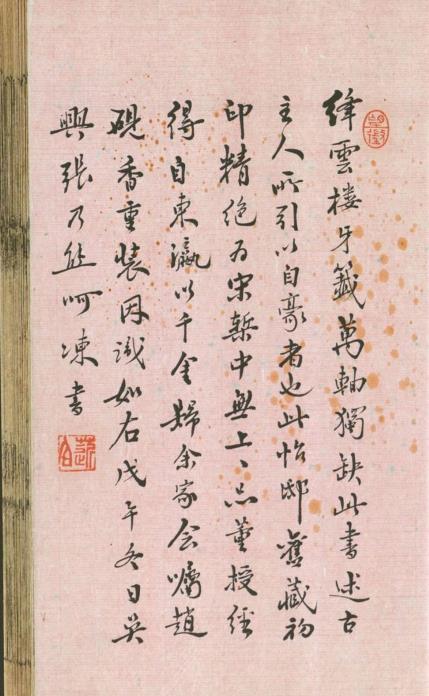 絳雲樓牙籤萬軸獨缺此書述古
主人所引以自豪者也此怡邸舊藏初
印精絶為宋槧中無上上品董授經
得自東瀛以千金歸余家今囑趙
硯香重裝因識如右戊午冬日吳
興張乃熊呵凍書